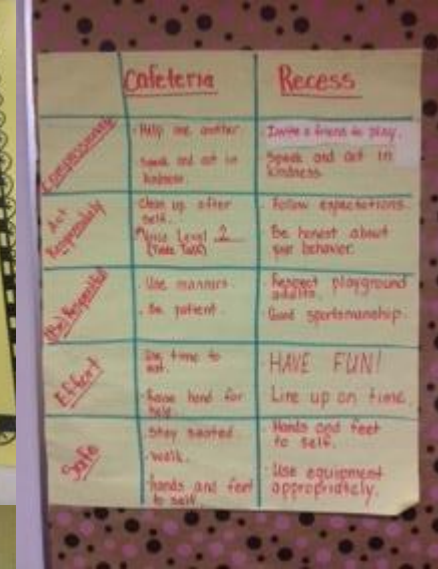 Cafeteria
Recess
Compassionate
Help one another
Speak and act in
kindness.
Invite a friend to play.
Speak and act in
kindness.
Act
Responsibly
Clean up after
self.
Voice Level 2
(Table Talk)
Follow expectations.
Be honest about
your behavior.
(Be) Respectful
Use manners.
Be patient.
Respect playground
adults.
Good sportsmanship.
Effort
Use time to
eat.
Raise hand for
help.
HAVE FUN!
Line up on time.
Safe
Stay seated.
walk.
hands and feet
to self.
Hands and feet
to self.
Use equipment
appropriately.